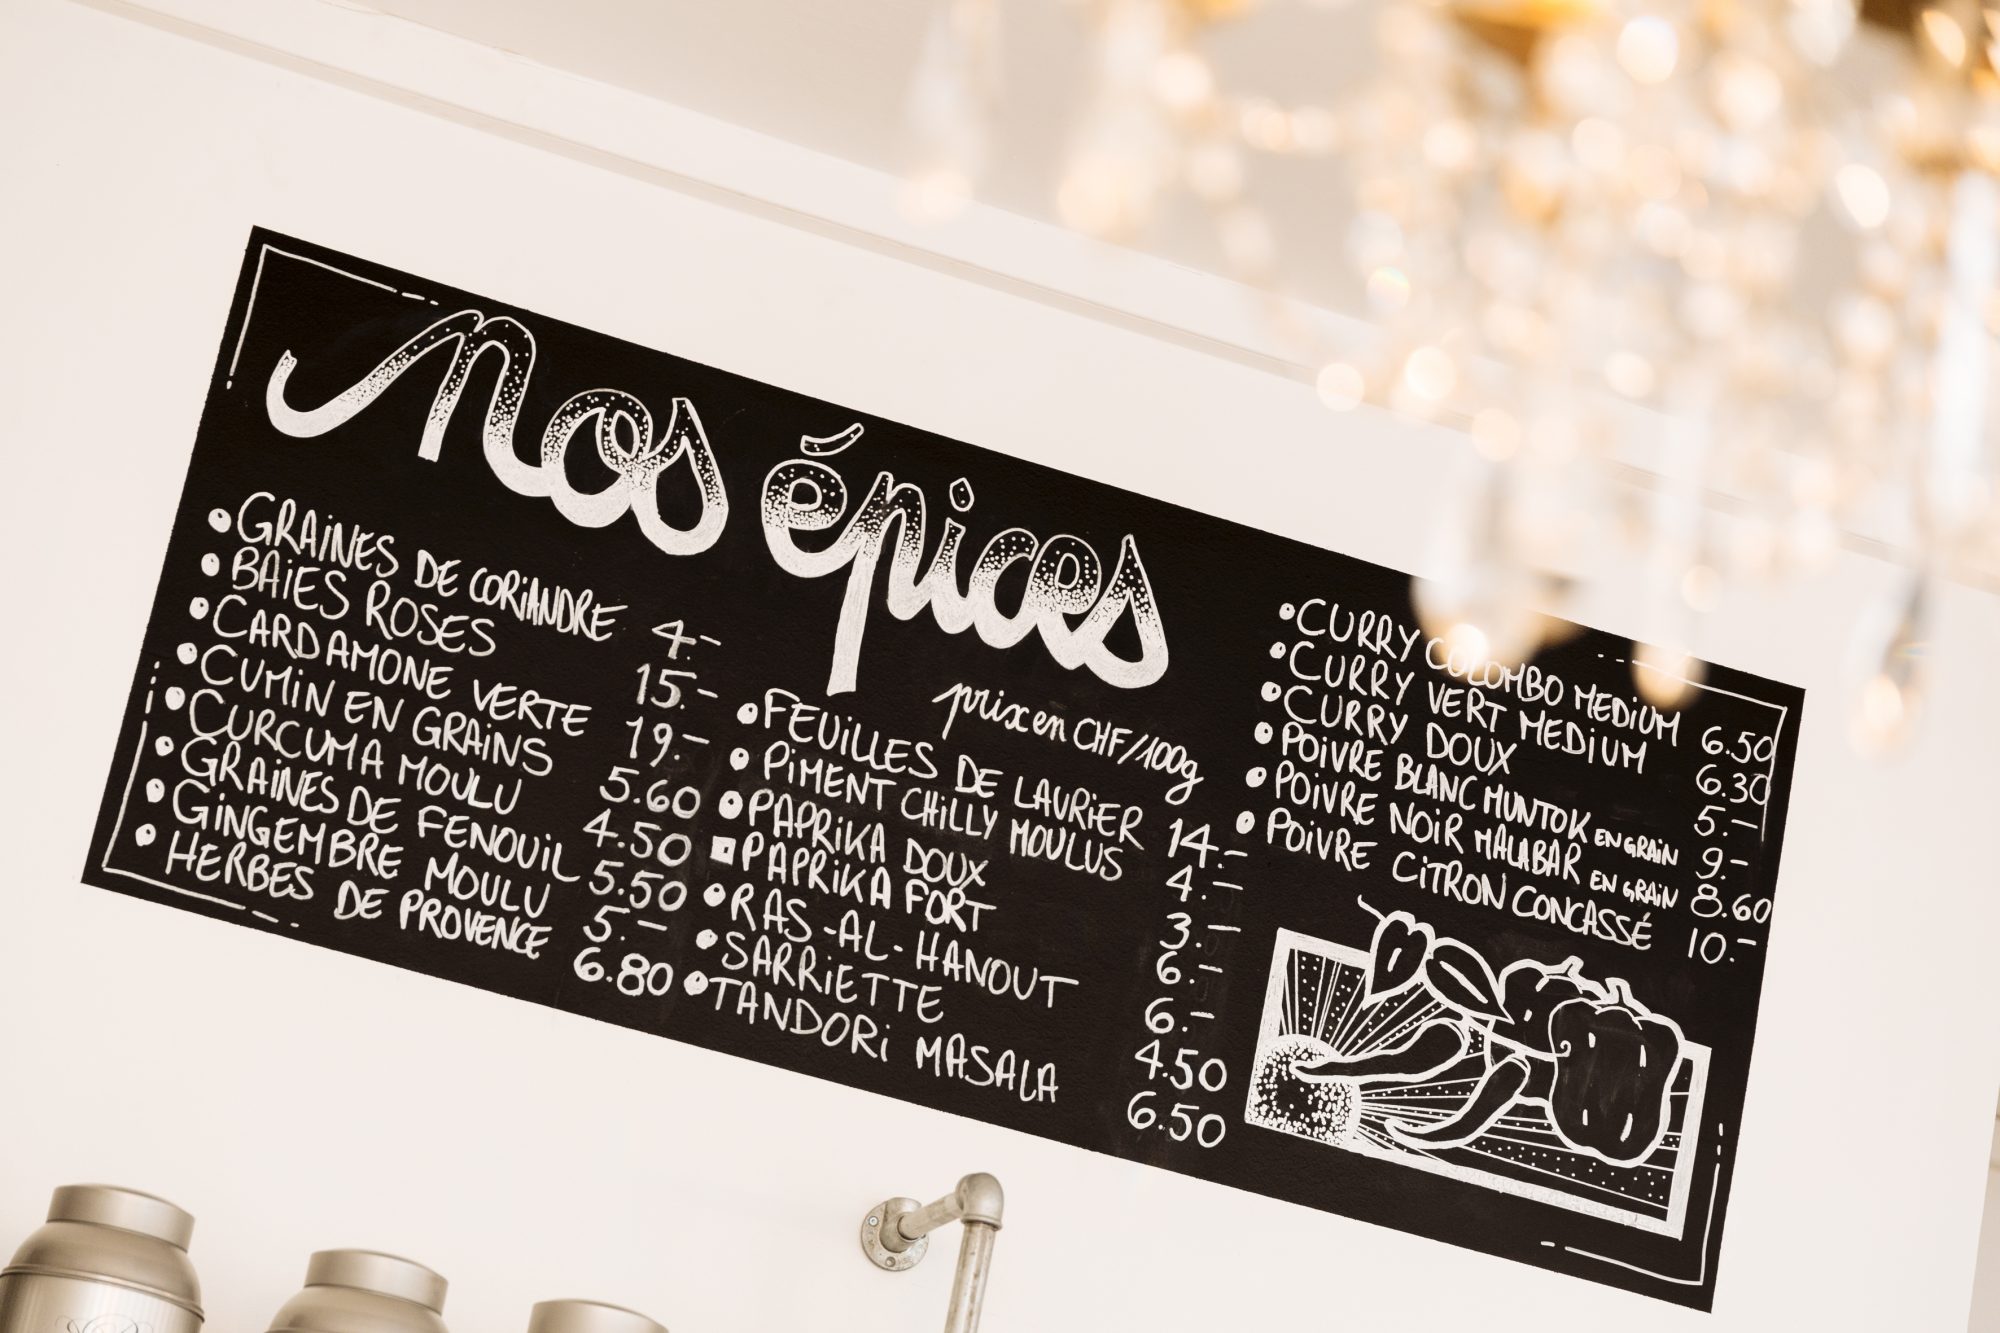 Nos épices
prix en CHF/100g
GRAINES DE CORIANDRE 4.-
BAIES ROSES 15.-
CARDAMONE VERTE 19.-
CUMIN EN GRAINS 5.60
CURCUMA MOULU 4.50
GRAINES DE FENOUIL 5.50
GINGEMBRE MOULU 5.-
HERBES DE PROVENCE 6.80
FEUILLES DE LAURIER 14.-
PIMENT CHILLY MOULUS 4.-
PAPRIKA DOUX 3.-
PAPRIKA FORT 6.-
RAS-AL-HANOUT 6.-
SARRIETTE 4.50
TANDORI MASALA 6.50
CURRY COLOMBO MEDIUM 6.50
CURRY VERT MEDIUM 6.30
CURRY DOUX 5.-
POIVRE BLANC MUNTOK EN GRAIN 9.-
POIVRE NOIR MALABAR EN GRAIN 8.60
POIVRE CITRON CONCASSÉ 10.-